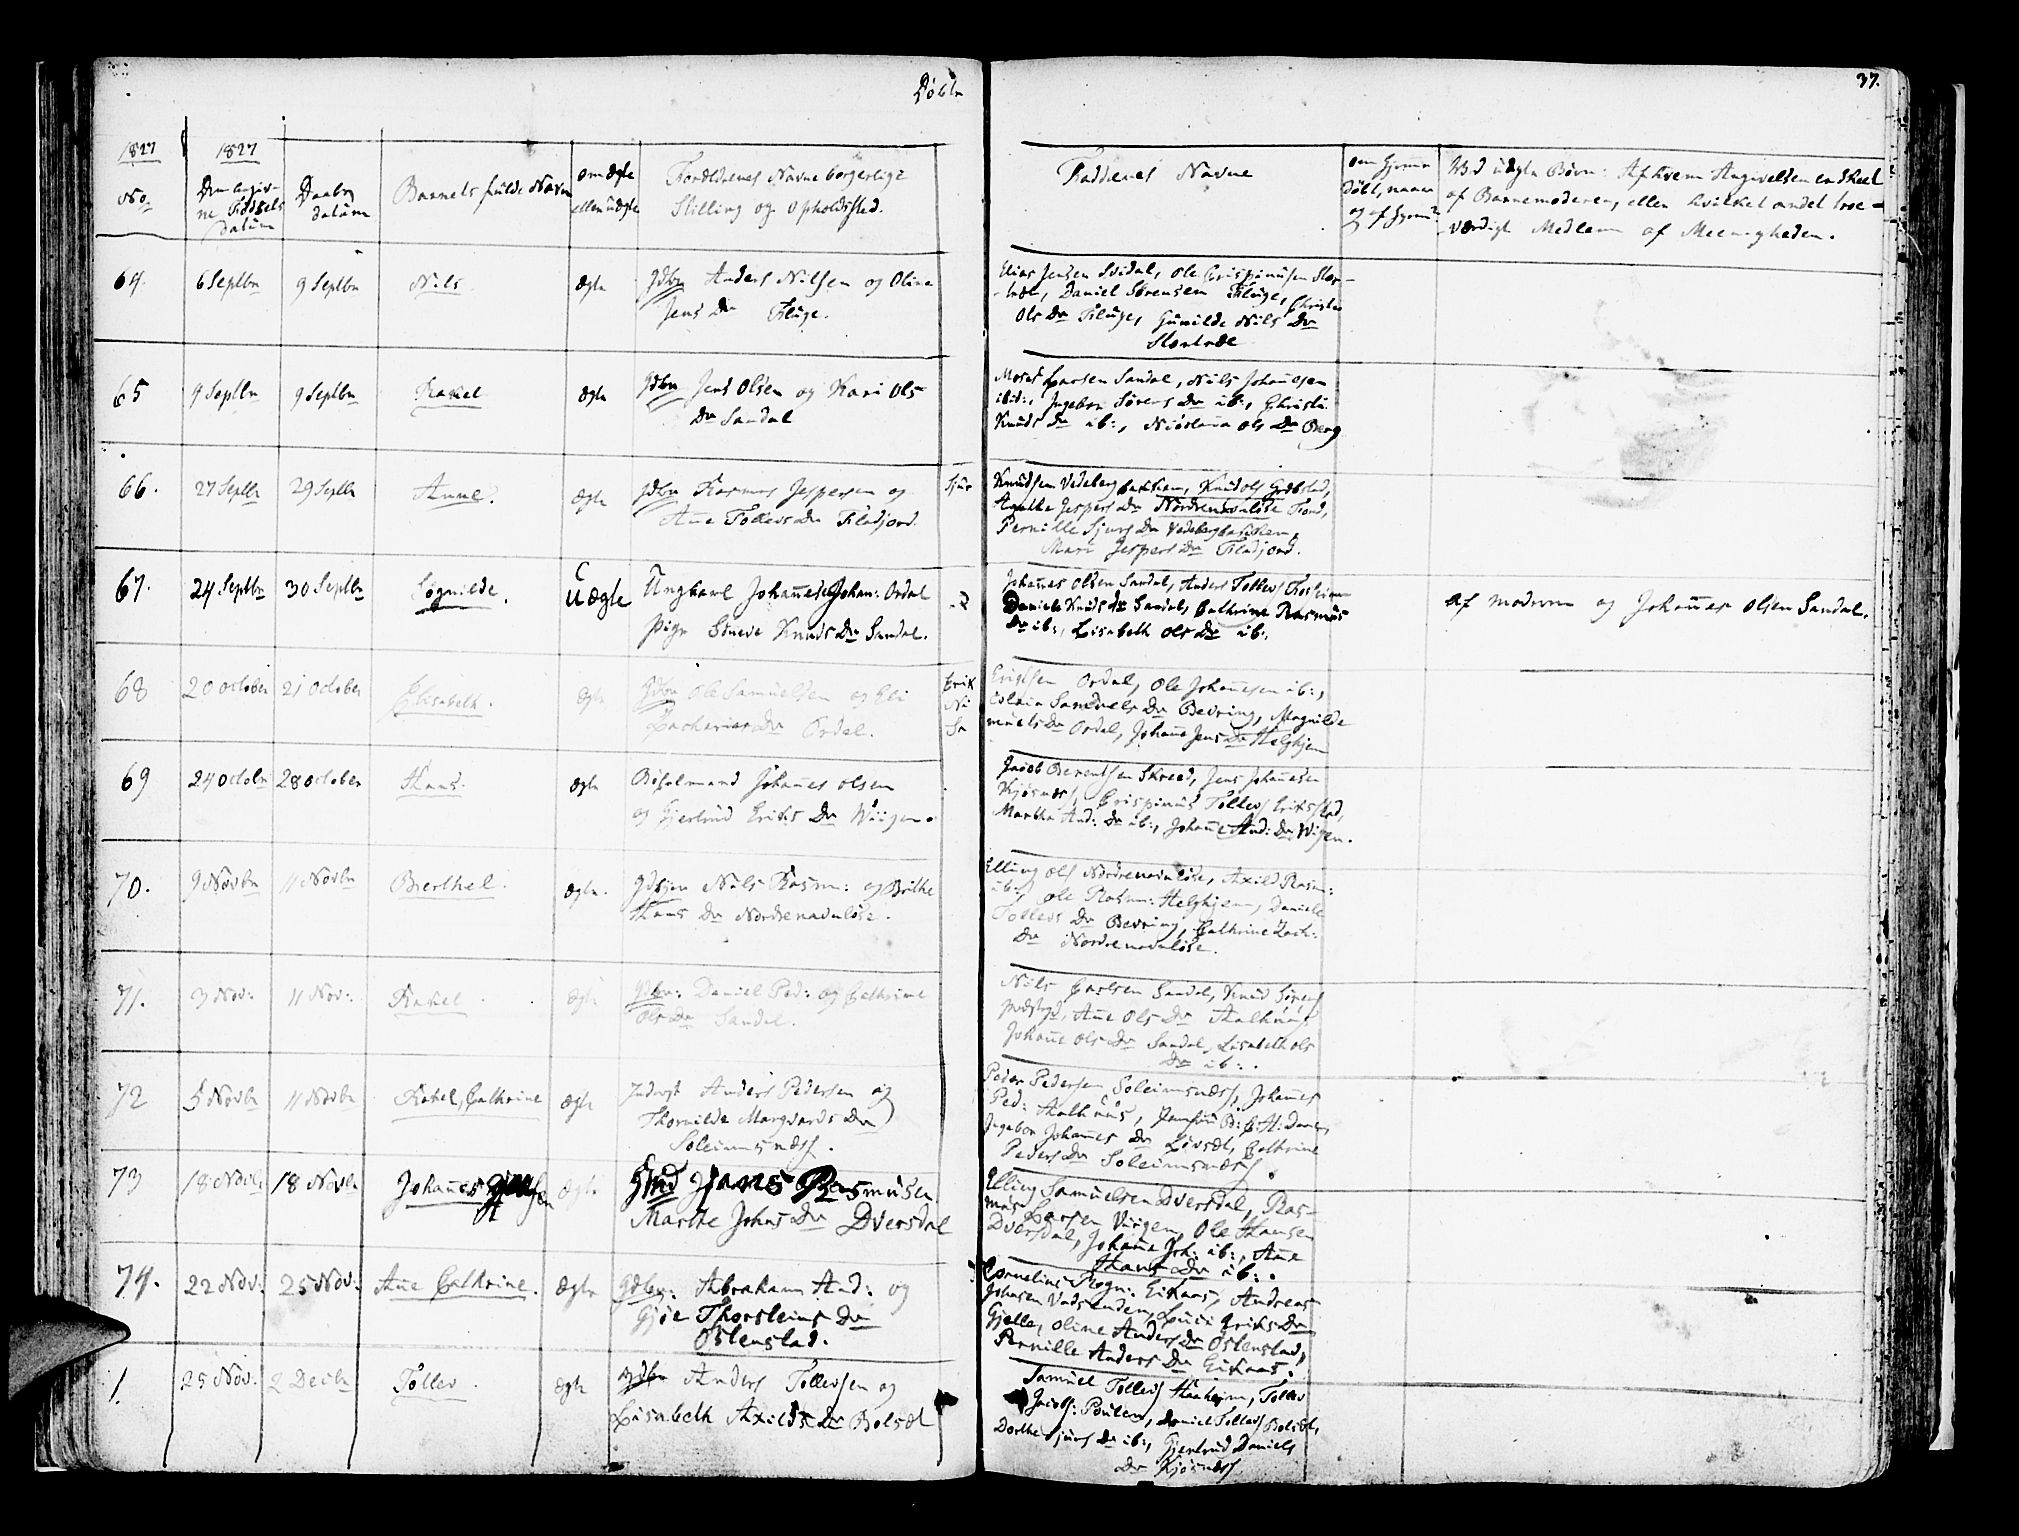 Døbte
37.
1827
1827
No.
Den angiv-
ne Fødsels
datum
Daabs
datum
Barnets fulde Navn
om ægte
eller uægte
Forældrenes Navne borgerlige
Stilling og Opholdssted.
Faddernes Navne
om hjemme
døbt, naar
og af hvem?
Ved uægte Børn: Af hvem Angivelsen er skeet
af Barnemoderen, eller hvilket andet troe-
værdigt Medlem af Meenigheden.
64. 6 Septbr 9 Septbr Nils ægte gdbr Anders Nilsen og Oline
Jens Dr Fluge.
Elias Jensen Svidal, Ole Crispinusen
Daniel Sørensen Fluge, Christi
Ols Dr Fluge, Gunilde Nils Dr
65 9 Septbr 9 Septbr Rakel ægte gdbr Jens Olsen og Kari Ols
Dr Sandal
Moses Larsen Sandal, Nils Johannesen
ibid:, Ingebor Sørens Dr ib:, Christi
Knuds Dr ib:, Ols Dr Berg
66. 27 Septbr 29 Septbr Anne. ægte gdbr Rasmus Jespersen og
Ane Tollevs Dr Fladjord.
Sjur
Knudsen Vedeberg, Knud Ols
Agathe Jespers Dr Nordrenavløse
Pernille Sjurs Dr
Mari Jespers Dr Fladjord.
67. 24 Septbr 30 Septbr Søgnilde. Uægte Ungkarl Johannes Johan: Ordal
Pige Knuds Dr Sandal.
Johannes Olsen Sandal, Anders Tollevs
Daniele Knuds Dr Sandal, Cathrine Rasmus
Dr ib:, Lisabeth Ols Dr ib:.
af moderen og Johannes Olsen Sandal.
68 20 october 21 October Elisabeth. ægte gdbr Ole Samuelsen og Eli
Zacharias Dr Ordal.
Erik
Ni
Sa
Erigsen Ordal, Ole Johannesen ib:,
colaia Samuels Dr Bevring, Magnilde
muels Dr Ordal, Johanne Jens Dr Helgheim
69 24 octobr 28 october Hans. ægte Bøfolmand Johannes Olsen
og Gjertrud Eriks Dr Wiigen.
Jacob Berentsen Skreed, Jens Johannesen
Kjøsnæs, Crispinus Tollevs Eriksstad,
Marthe And: Dr ib:, Johanne And: Dr Wigen.
70. 9 Novbr 11 Novbr Berthel. ægte. Nils Rasm: og Brithe
Hans Dr Nordrenavnløse.
Elling Ols Nordrenavnløse, Axild Rasm:
ib:, Ole Rasm: Helghjem, Daniele
Tollevs Dr Bevring, Cathrine Zach:
Dr Nordrenavnløse.
71. 3 Nov: 11 Nov: Rakel. ægte gdbr: Daniel Ped: og Cathrine
Ols Dr Sandal.
Nils Carlsen Sandal, Knud Sørens
Ane Ols Dr Aalhuus
Johanne Ols Dr Sandal, Lisabeth Ols
Dr ib:.
72 5 Novbr 11 Novbr Rakel, Cathrine ægte Inderst Anders Pedersen og
Thornilde Margvards Dr
Soleimsnæss.
Peder Pedersen Soleimsnæss, Johannes
Ped: Aalhuus,
Ingebor Johannes Dr Løvsæt, Cathrine
Peders Dr Soleimsnæss.
73 18 Novbr 18 Novbr Johannes ægte Jens Rasmusen
Marthe Johns Dr Dversdal
Elling Samuelsen Dversdal, Ras-
mus Larsen Viigen, Ole Hansen
Dversdal, Johanne Joh: ib:, Ane
Hans Dr ib:.
74. 22 Nov: 25 Nov: Ane Cathrine. ægte gdbr: Abraham And: og
Gjøe Thorsteins Dr
Ostenstad.
Cornelius Rogn: Eikaas, Andreas
Johnsen Vadsenden, Luci Eriks Dr
Gjelle, Oline Anders Dr Ostenstad,
Pernille Anders Dr Eikaas.
1. 25 Nov. 2 Decbr Tollev. ægte gdbr Anders Tollevsen og
Lisabeth Axilds Dr Bolsæt
Samuel Tollevs Aaheim, Tollev
Jacobs: Paulen, Daniel Tollevs Bolsæt,
Dorthe Sjurs Dr ib:, Gjertrud Daniels
Dr Kjøsnæss